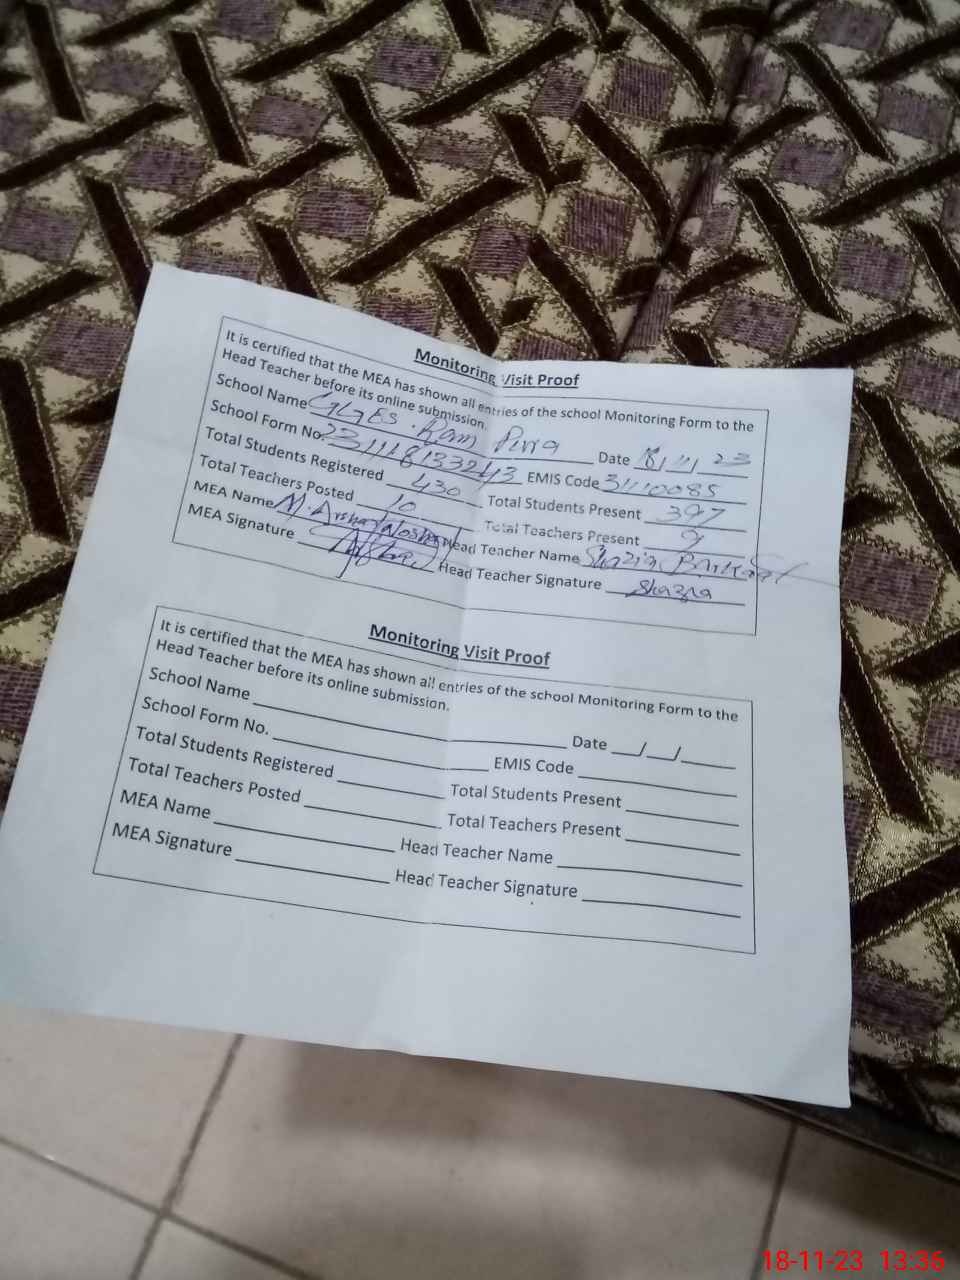 Monitoring Visit Proof
It is certified that the MEA has shown all entries of the school Monitoring Form to the
Head Teacher before its online submission.
School Name GGES. Ram Pura Date 18/11/23
School Form No. 231118133243 EMIS Code 31110085
Total Students Registered 430 Total Students Present 397
Total Teachers Posted 10 Total Teachers Present 9
MEA Name M. Arshad Head Teacher Name Shazia Barkat
MEA Signature Head Teacher Signature Shazia
Monitoring Visit Proof
It is certified that the MEA has shown all entries of the school Monitoring Form to the
Head Teacher before its online submission.
School Name Date __/__/____
School Form No. EMIS Code
Total Students Registered Total Students Present
Total Teachers Posted Total Teachers Present
MEA Name Head Teacher Name
MEA Signature Head Teacher Signature
18-11-23 13:36